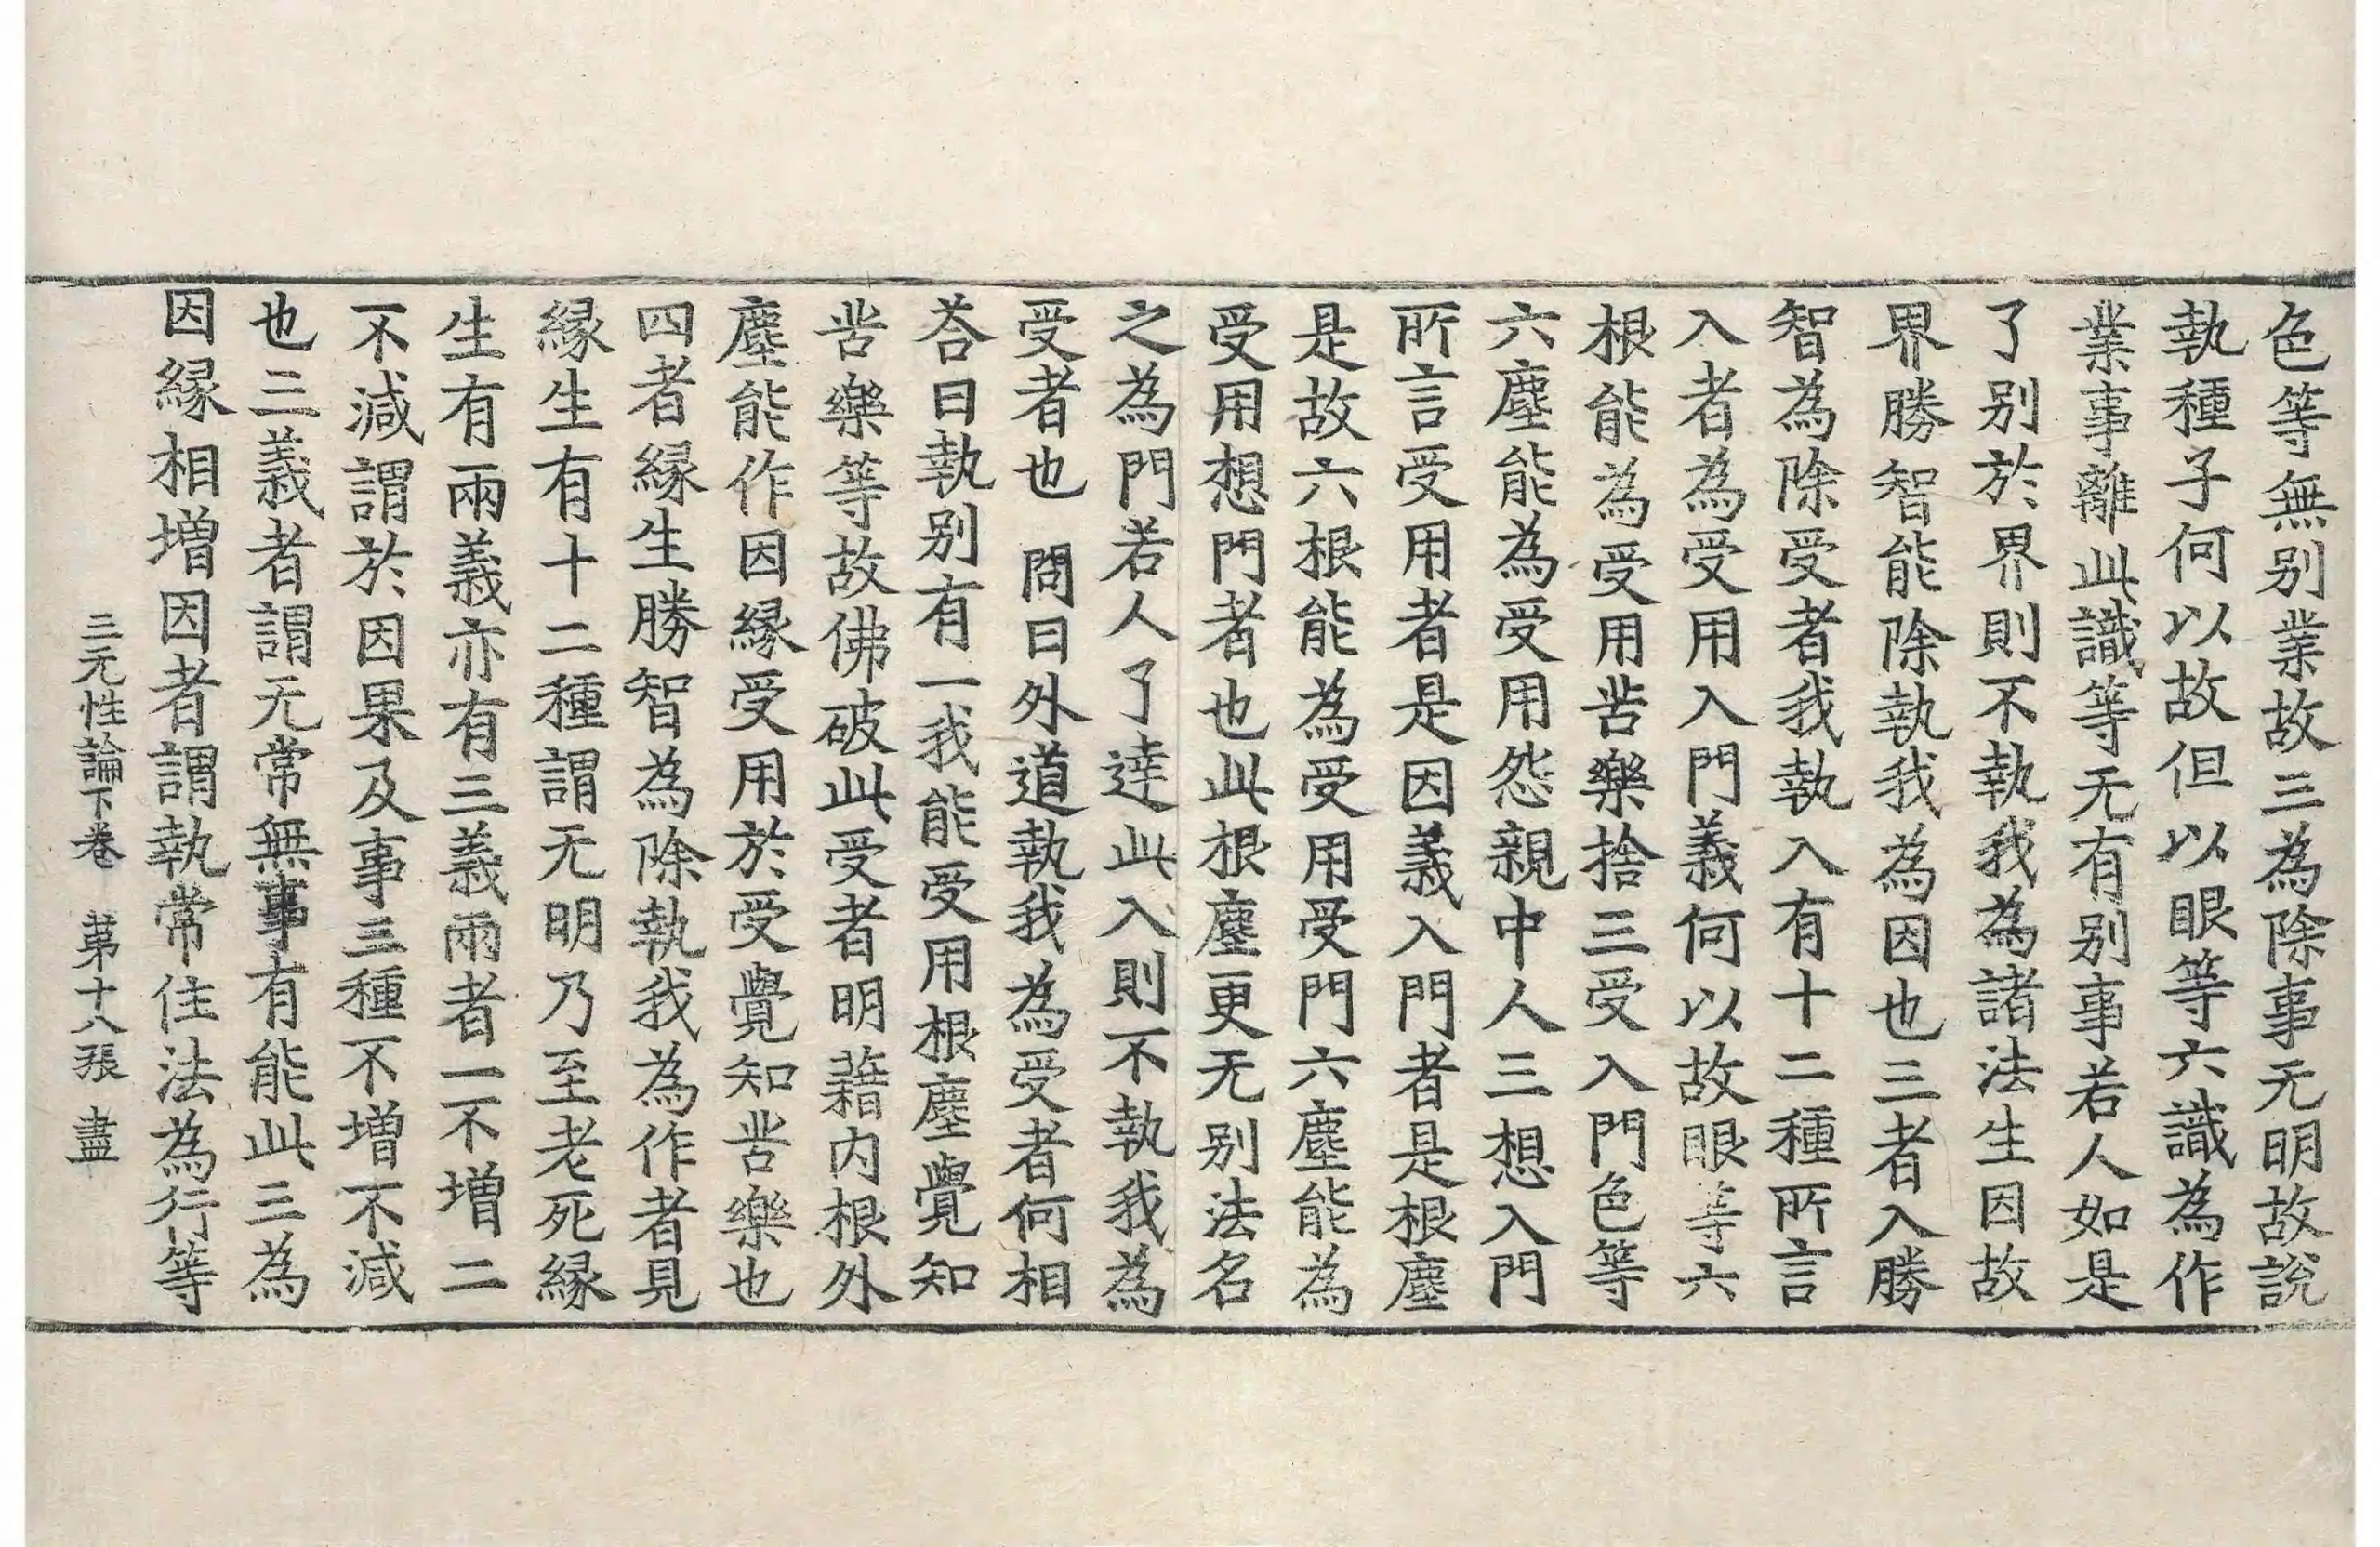 色等無別業故三為除事无明故說
執種子何以故但以眼等六識為作
業事離此識等无有別事若人如是
了別於界則不執我為諸法生因故
界勝智能除執我為因也三者入勝
智為除受者我執入有十二種所言
入者為受用入門義何以故眼等六
根能為受用苦樂捨三受入門色等
六塵能為受用怨親中人三想入門
所言受用者是因義入門者是根塵
是故六根能為受用受門六塵能為
受用想門者也此根塵更无別法名
之為門若人了達此入則不執我為
受者也 問曰外道執我為受者何相
荅曰執別有一我能受用根塵覺知
苦樂等故佛破此受者明藉內根外
塵能作因緣受用於受覺知苦樂也
四者緣生勝智為除執我為作者見
緣生有十二種謂无明乃至老死緣
生有兩義亦有三義兩者一不增二
不減謂於因果及事三種不增不減
也三義者謂无常無事有能此三為
因緣相增因者謂執常住法為行等
三无性論下卷 第十八張 盡